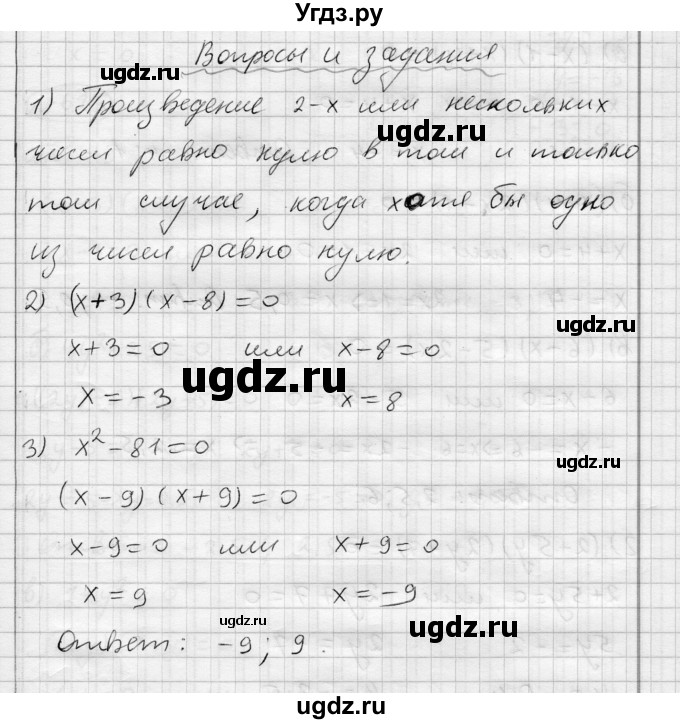 Угдз.ру
Вопросы и задания
ugdz.ru
1) Произведение 2-х или нескольких
ugdz.ru
чисел равно нулю в том и только
том случае, когда хотя бы одно
из чисел равно нулю.
2) (x+3)(x-8)=0
ugdz.ru
x+3=0 или x-8=0
ugdz.ru
x=-3 x=8
3) x²-81=0
ugdz.ru
(x-9)(x+9)=0
x-9=0 или x+9=0
x=9 x=-9
ugdz.ru
ugdz.ru
Ответ: -9; 9.
ugdz.ru